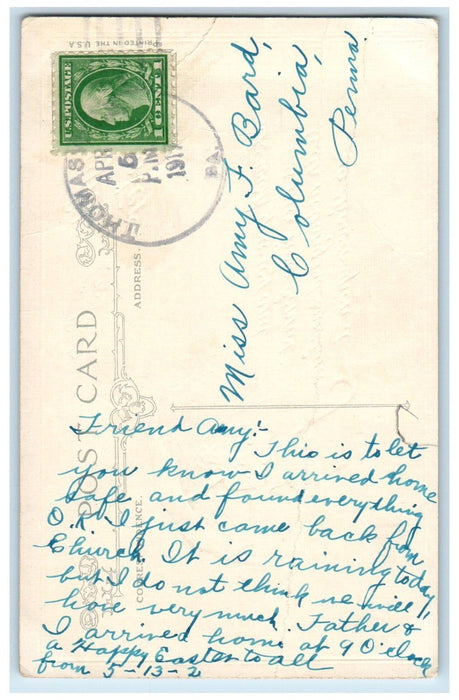 PRINTED IN THE U.S.A
U.S. POSTAGE
1 CENT 1
THOMAS
PA.
APR
6
P.M
191
POST CARD
ADDRESS.
CORRESPONDENCE.
Miss Amy F. Bard,
Columbia,
Penna
Friend Amy:-
This is to let
you know I arrived home
safe and found everything
O.K. I just came back from
Church. It is raining today
but I do not think we will
have very much. Father &
I arrived home at 9 O'clock
a Happy Easter to all
from 5-13-2